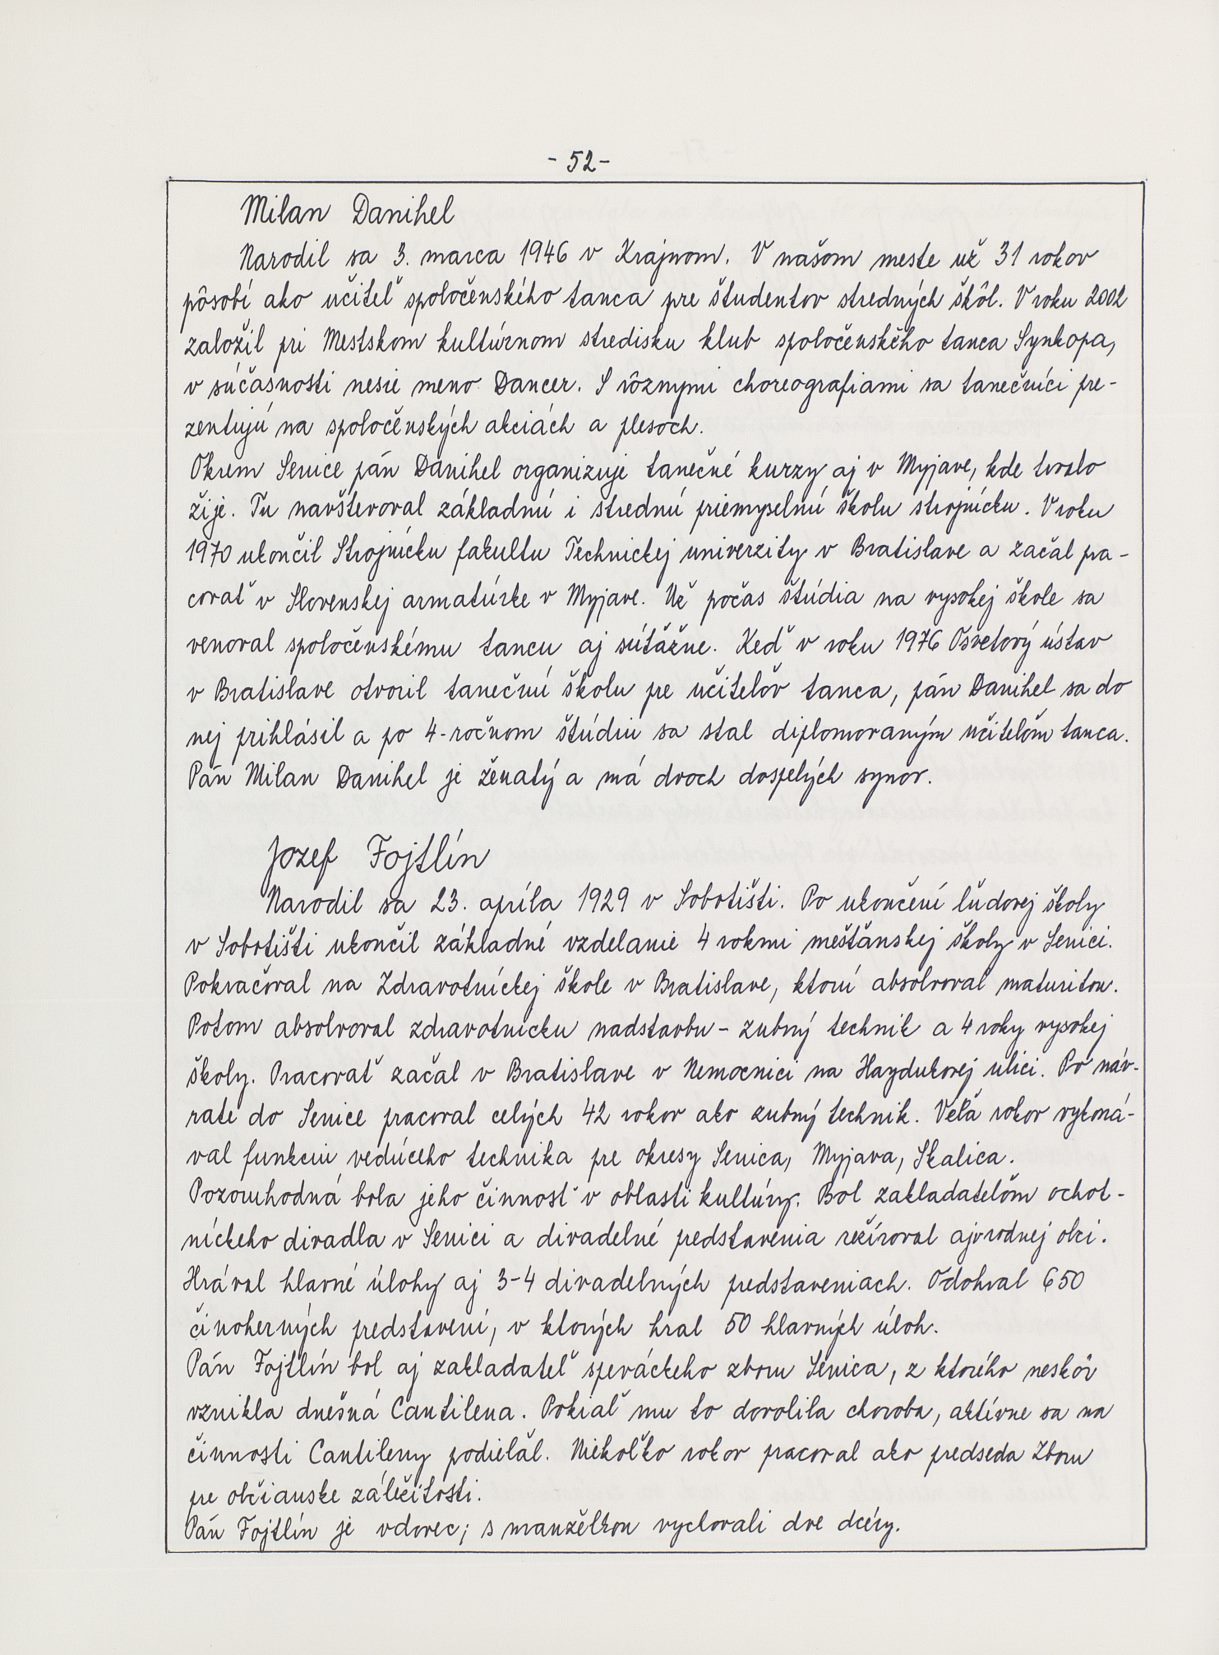 - 52 -
Milan Danihel
Narodil sa 3. marca 1946 v Krajnom. V našom meste už 31 rokov
pôsobí ako učiteľ spoločenského tanca pre študentov stredných škôl. V roku 2002
založil pri Mestskom kultúrnom stredisku klub spoločenského tanca Synkopa,
v súčasnosti nesie meno Dancer. S rôznymi choreografiami sa tanečníci pre-
zentujú na spoločenských akciách a plesoch.
Okrem Senice pán Danihel organizuje tanečné kurzy aj v Myjave, kde trvalo
žije. Tu navštevoval základnú i strednú priemyselnú školu strojnícku. V roku
1970 ukončil Strojnícku fakultu Technickej univerzity v Bratislave a začal pra-
covať v Slovenskej armatúrke v Myjave. Už počas štúdia na vysokej škole sa
venoval spoločenskému tancu aj súťažne. Keď v roku 1976 Osvetový ústav
v Bratislave otvoril tanečnú školu pre učiteľov tanca, pán Danihel sa do
nej prihlásil a po 4-ročnom štúdiu sa stal diplomovaným učiteľom tanca.
Pán Milan Danihel je ženatý a má dvoch dospelých synov.
Jozef Fojtlín
Narodil sa 23. apríla 1929 v Sobotišti. Po ukončení ľudovej školy
v Sobotišti ukončil základné vzdelanie 4 rokmi meštianskej školy v Senici.
Pokračoval na Zdravotníckej škole v Bratislave, ktorú absolvoval maturitou.
Potom absolvoval zdravotnícku nadstavbu - zubný technik a 4 roky vysokej
školy. Pracovať začal v Bratislave v Nemocnici na Haydukovej ulici. Po náv-
rate do Senice pracoval celých 42 rokov ako zubný technik. Veľa rokov vykoná-
val funkciu vedúceho technika pre okresy Senica, Myjava, Skalica.
Pozoruhodná bola jeho činnosť v oblasti kultúry. Bol zakladateľom ochot-
níckeho divadla v Senici a divadelné predstavenia režíroval aj v rodnej obci.
Hrával hlavné úlohy aj 3-4 divadelných predstaveniach. Odohral 650
činoherných predstavení, v ktorých hral 50 hlavných úloh.
Pán Fojtlín bol aj zakladateľ speváckeho zboru Senica, z ktorého neskôr
vznikla dnešná Cantilena. Pokiaľ mu to dovolila choroba, aktívne sa na
činnosti Cantileny podieľal. Niekoľko rokov pracoval ako predseda Zboru
pre občianske záležitosti.
Pán Fojtlín je vdovec; s manželkou vychovali dve dcéry.